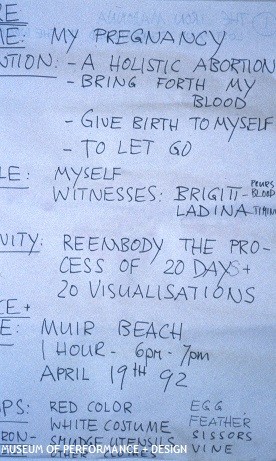 RE
ME: MY PREGNANCY
NTION: - A HOLISTIC ABORTION
- BRING FORTH MY
BLOOD
- GIVE BIRTH TO MYSELF
- TO LET GO
LE: MYSELF
WITNESSES: BRIGITT - POURS BLOOD
LADINA - TIMING
VITY: REEMBODY THE PRO-
CESS OF 20 DAYS +
20 VISUALISATIONS
CE +
E: MUIR BEACH
1 HOUR - 6pm - 7pm
APRIL 19TH 92
PS: RED COLOR EGG
WHITE COSTUME FEATHER
RON- SMUDGE UTENSILS SISSORS
VINE
MUSEUM OF PERFORMANCE + DESIGN